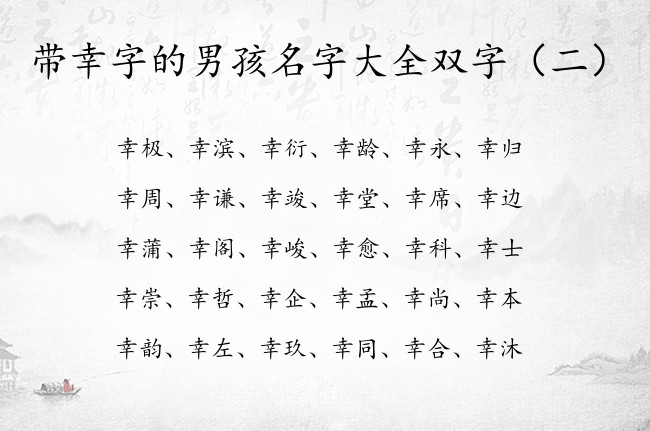 带幸字的男孩名字大全双字（二）
幸极、幸滨、幸衍、幸龄、幸永、幸归
幸周、幸谦、幸竣、幸堂、幸席、幸边
幸蒲、幸阁、幸峻、幸愈、幸科、幸士
幸崇、幸哲、幸企、幸孟、幸尚、幸本
幸韵、幸左、幸玖、幸同、幸合、幸沐